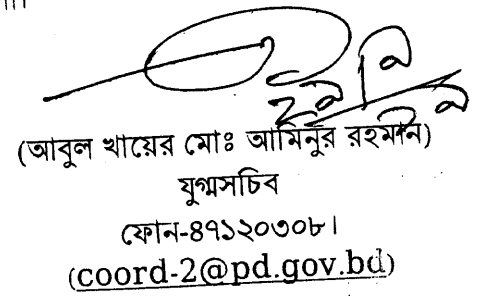 (আবুল খায়ের মোঃ আমিনুর রহমান)
যুগ্মসচিব
ফোন-৪৭১২০৩০৮।
(coord-2@pd.gov.bd)